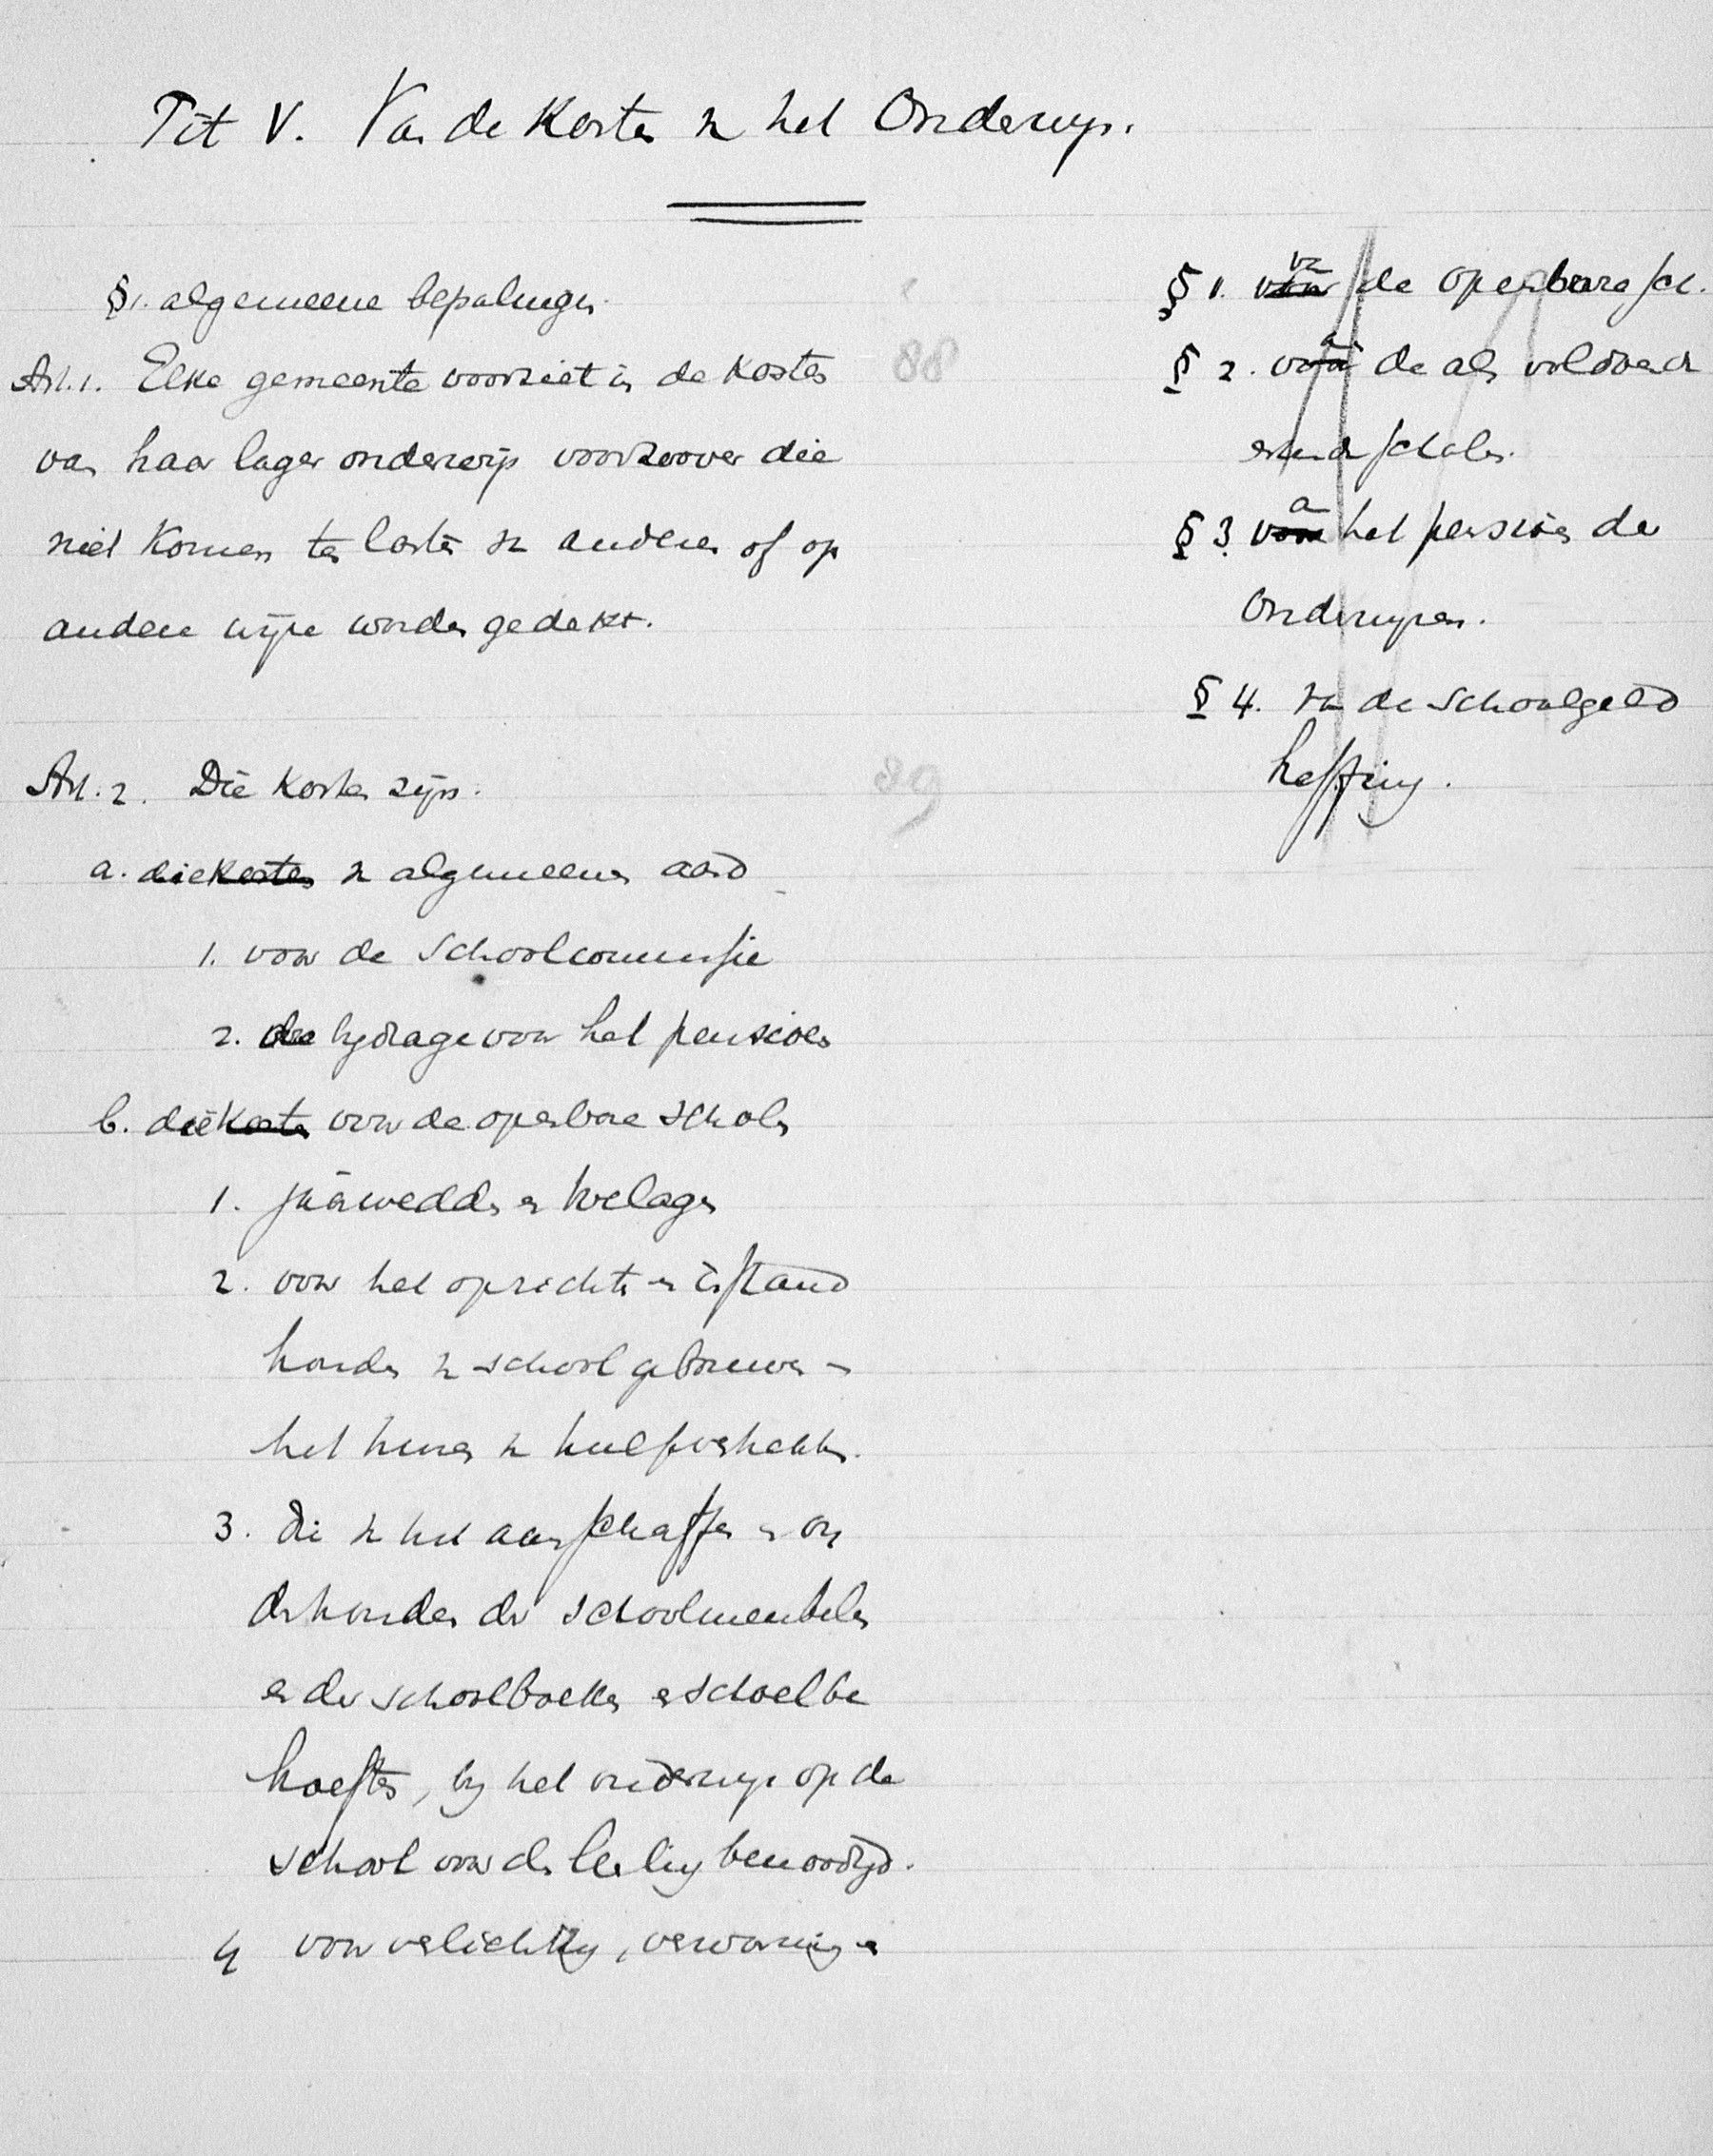 Tit V. Van de Kosten vn het Onderwijs.
§1. algemeene bepalingen.
Art. 1. Elke gemeente voorziet in de kosten
88
van haar lager onderwijs voorzoover die
niet komen ten laste vn anderen of op
andere wijze worden gedekt.
Art. 2. Die kosten zijn:
89
a. die kosten vn algemeenen aard
1. voor de Schoolcommissie
2. de bijdrage voor het pensioen
b. die kosten voor de openbare scholen
1. jaarwedden en toelagen
2. voor het oprichten en instand
houden vn schoolgebouwen en
het huren vn hulpvertrekken.
3. die vn het aanschaffen en on
derhouden der schoolmeubelen
en der schoolboeken en schoolbe
hoeften, bij het onderwijs op de
school voor de leerling benoodigd.
4 voor verlichting, verwarming en
§ 1. voor vn de openbare sch.
§ 2. voor de als voldoend
erkende scholen.
§ 3. voor het pensioen der
Onderwijzers.
§ 4. vn de Schoolgeld
heffing.